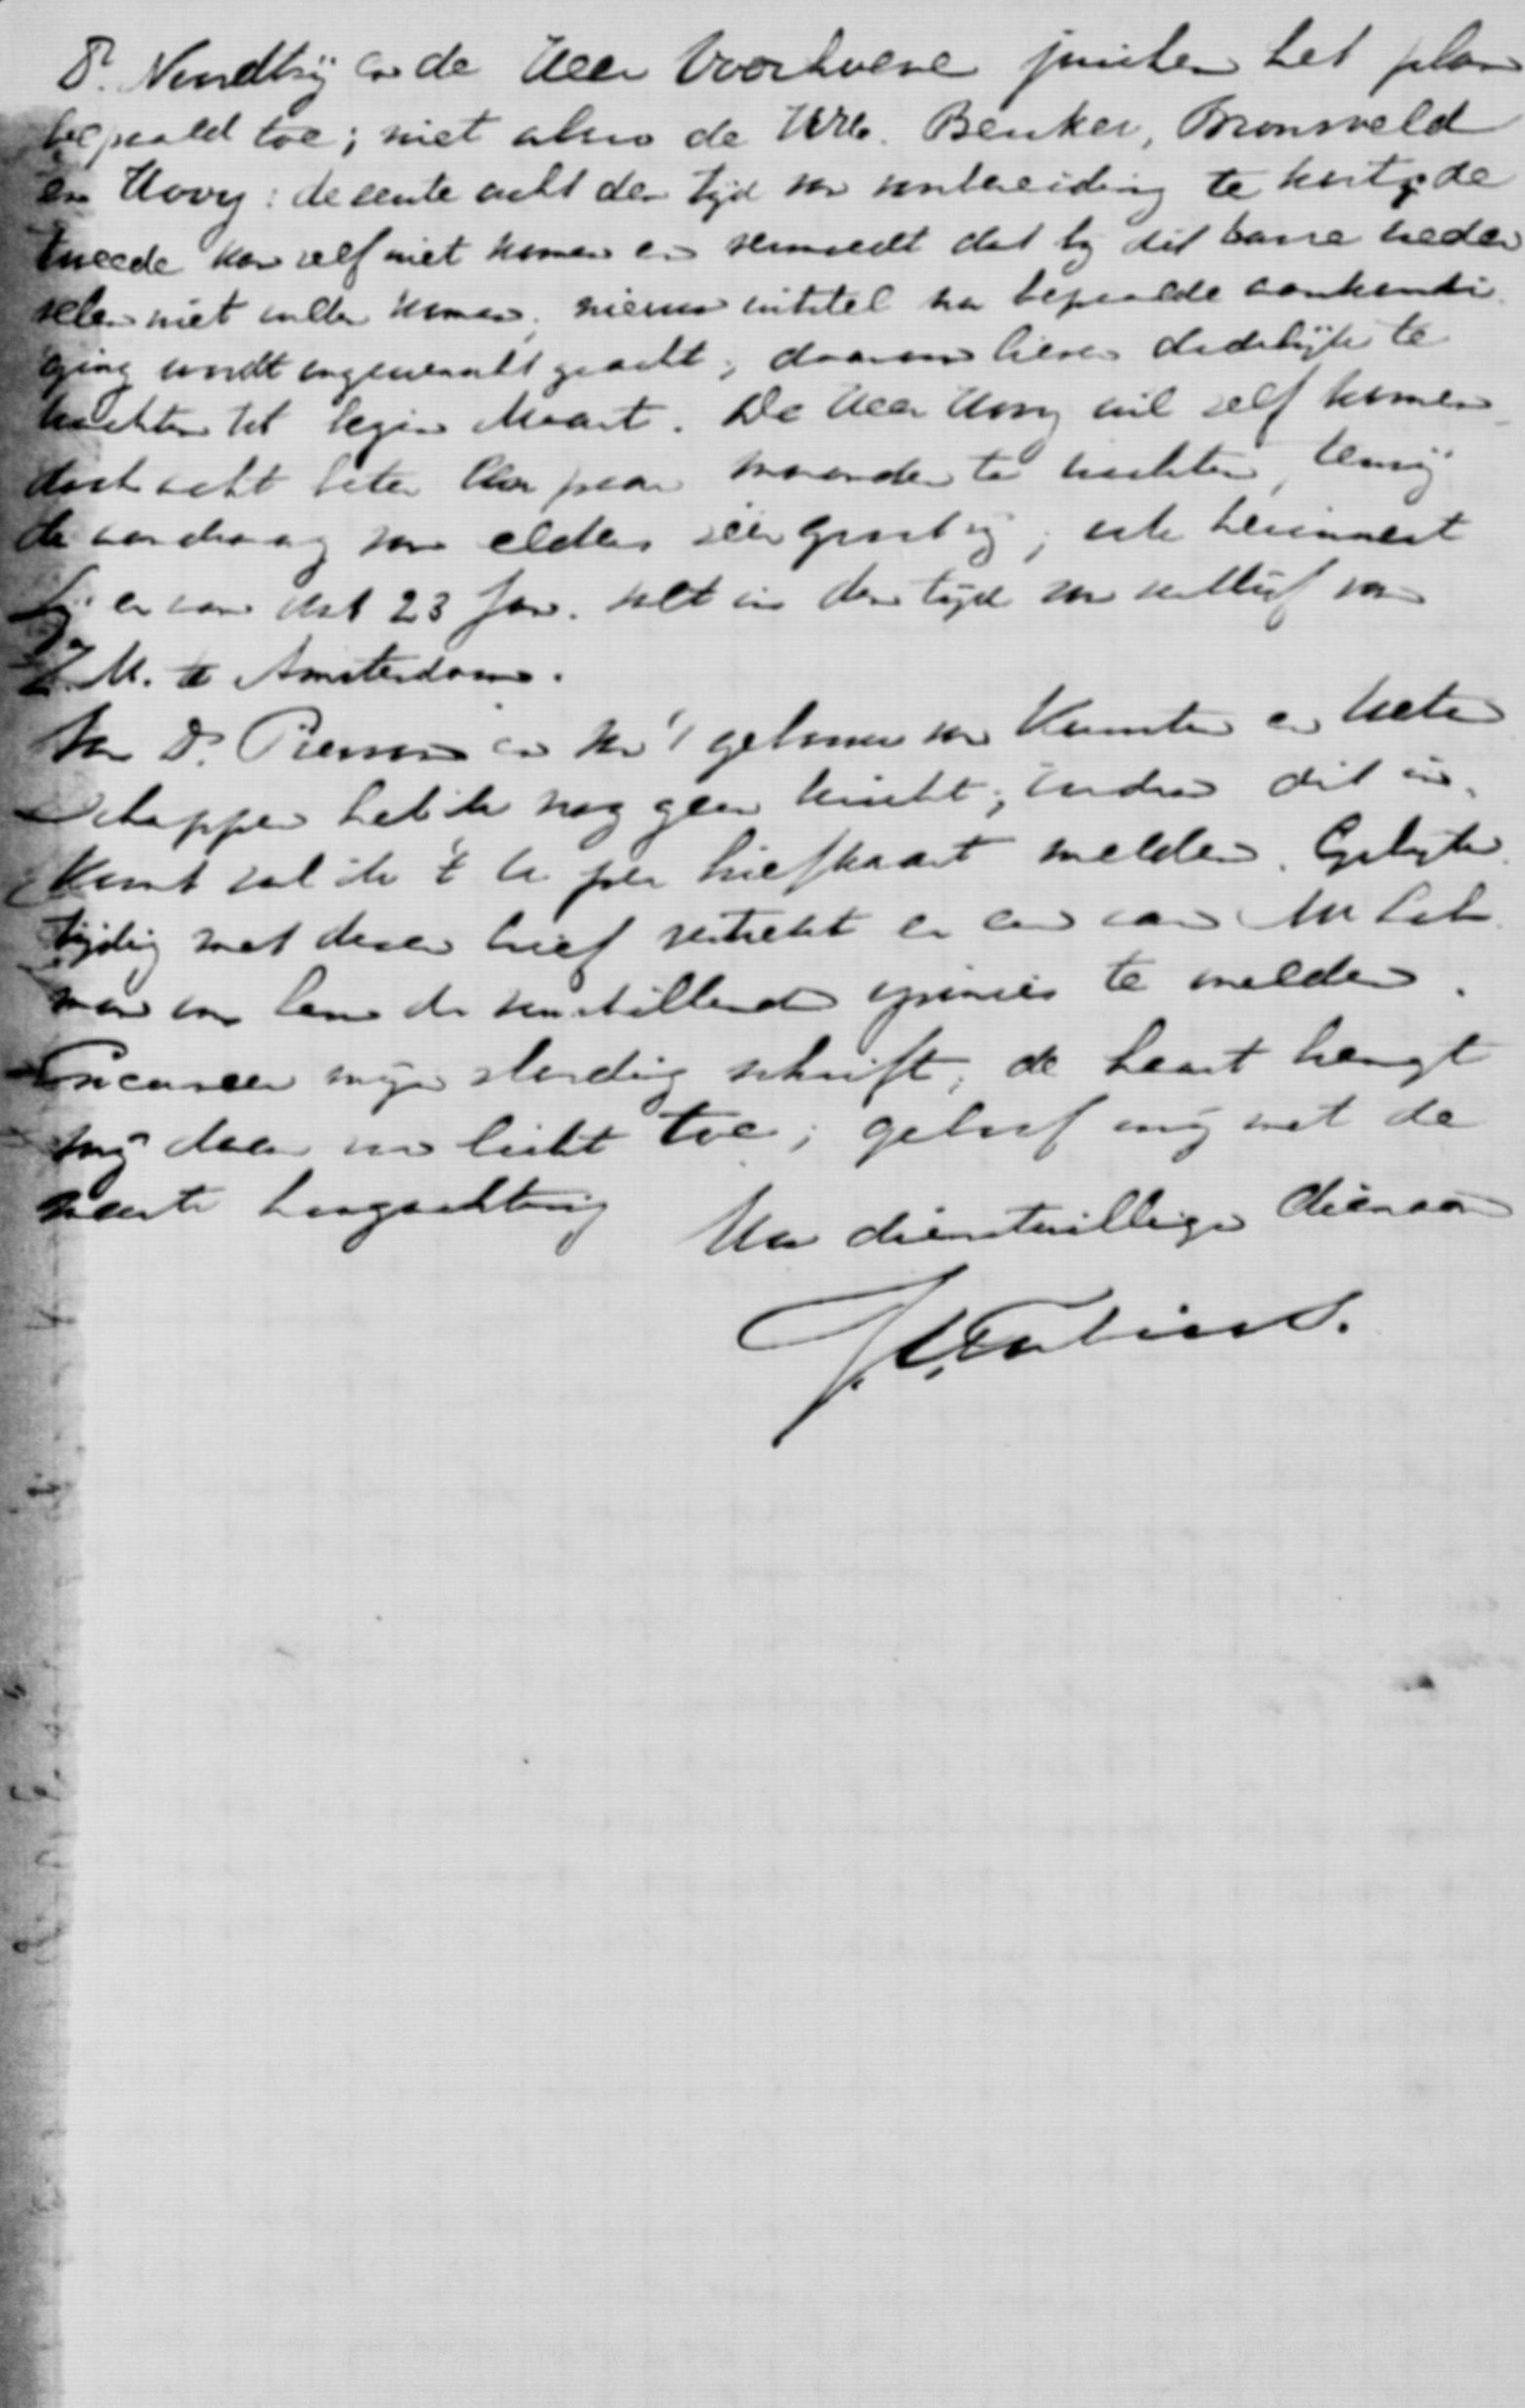 Ds. Nendtvig en de Heer Voorhoeve juichen het plan
bepaald toe; niet alzoo de HH. Beuker, Bronsveld
en Hovy: de eerste acht den tijd van voorbereiding te kort; de
tweede kan zelf niet komen en vermoedt dat bij dit barre weder
velen niet zullen komen; nieuw uitstel na bepaalde aankondi-
ging wordt ongewenscht geacht; daarom liever dadelijk te
wachten tot begin Maart. De Heer Hovy wil zelf komen
doch acht beter een paar maanden te wachten, tenzij
de aandrang van elders zeer gunstig; ook herinnert
hij er aan dat 23 Jan. valt in den tijd van verblijf van
Z.M. te Amsterdam.
Van Ds. Pierson en van 't gebouw van Kunsten en Weten-
schappen heb ik nog geen bericht; indien dit in-
komt zal ik 't U per briefkaart melden. Gelijk-
tijdig met dezen brief vertrekt er een aan
om hem de verschillende opiniën te melden.
Excuseer mijn slordig schrift, de haast brengt
mij daar zoo licht toe; geloof mij met de
meeste hoogachting Uw dienstwillige dienaar
Fabius.